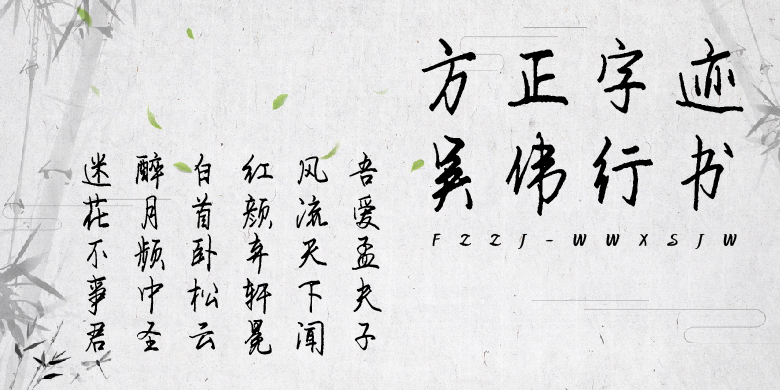 方正字迹
吴伟行书
FZZJ-WWXSJW
吾爱孟夫子
风流天下闻
红颜弃轩冕
白首卧松云
醉月频中圣
迷花不事君